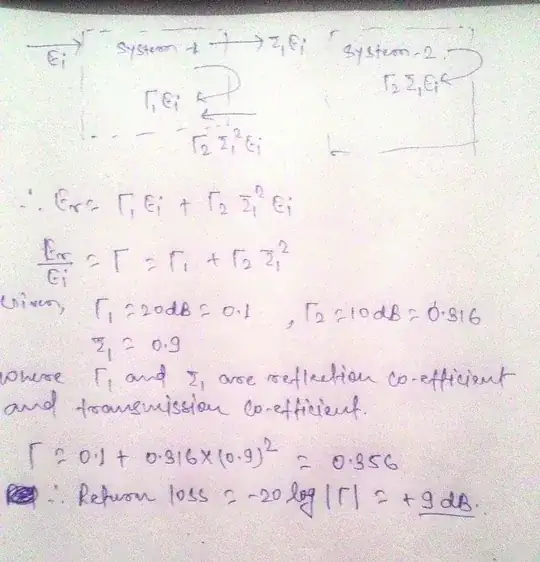 Ei System-1 Σ1Ei System-2
Γ1Ei Γ2Σ1Ei
Γ2Σ1²Ei
∴ Er = Γ1Ei + Γ2Σ1²Ei
Er/Ei = Γ = Γ1 + Γ2Σ1²
Given, Γ1 = 20dB = 0.1 , Γ2 = 10dB = 0.316
Σ1 = 0.9
Where Γ1 and Σ1 are reflection co-efficient
and transmission co-efficient.
Γ = 0.1 + 0.316×(0.9)² = 0.356
∴ Return loss = -20 log|Γ| = +9dB.